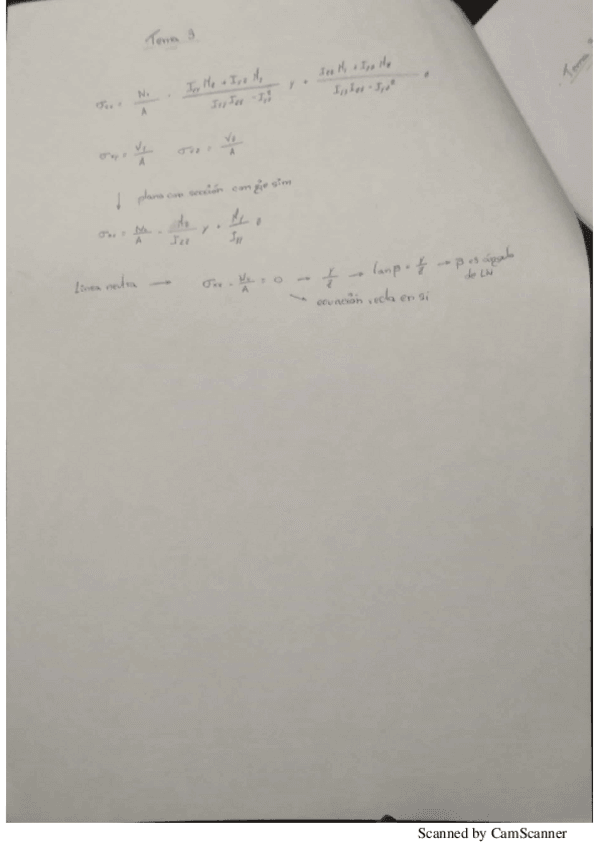 Tema 3
σxx = Nx/A - (Iyy Mz + Iyz My)/(Iyy Izz - Iyz²) y + (Izz My + Iyz Mz)/(Iyy Izz - Iyz²) z
σxy = Vy/A σxz = Vz/A
↓ plano con sección con eje sim
σxx = Nx/A - Mz/Izz y + My/Iyy z
Línea neutra → σxx - Nx/A = 0 → y/z → tanβ = y/z → β es ángulo
de LN
ecuación recta en si
Tema
Scanned by CamScanner